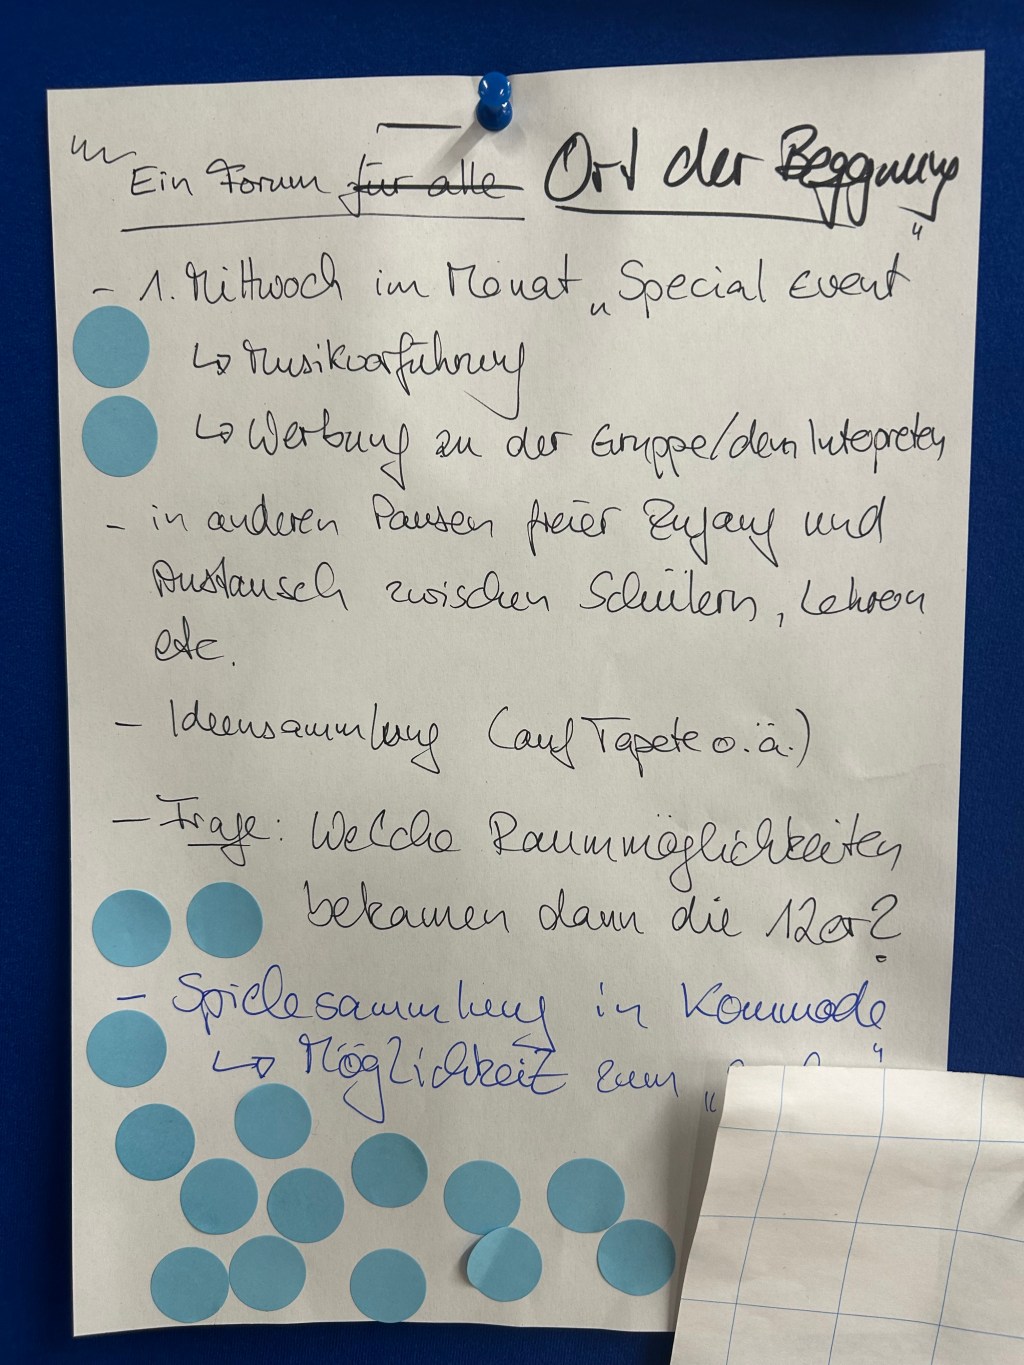 Ein Forum für alle Ort der Begegnung
- 1. Mittwoch im Monat „Special Event"
↳ Musikvorführung
↳ Werbung zu der Gruppe/dem Intepreten
- in anderen Pausen freier Zugang und
Austausch zwischen Schülern, Lehrern
etc.
- Ideensammlung (auf Tapete o.ä.)
- Frage: Welche Raummöglichkeiten
bekamen dann die 12er?
- Spielesammlung in Kommode
↳ Möglichkeit zum „